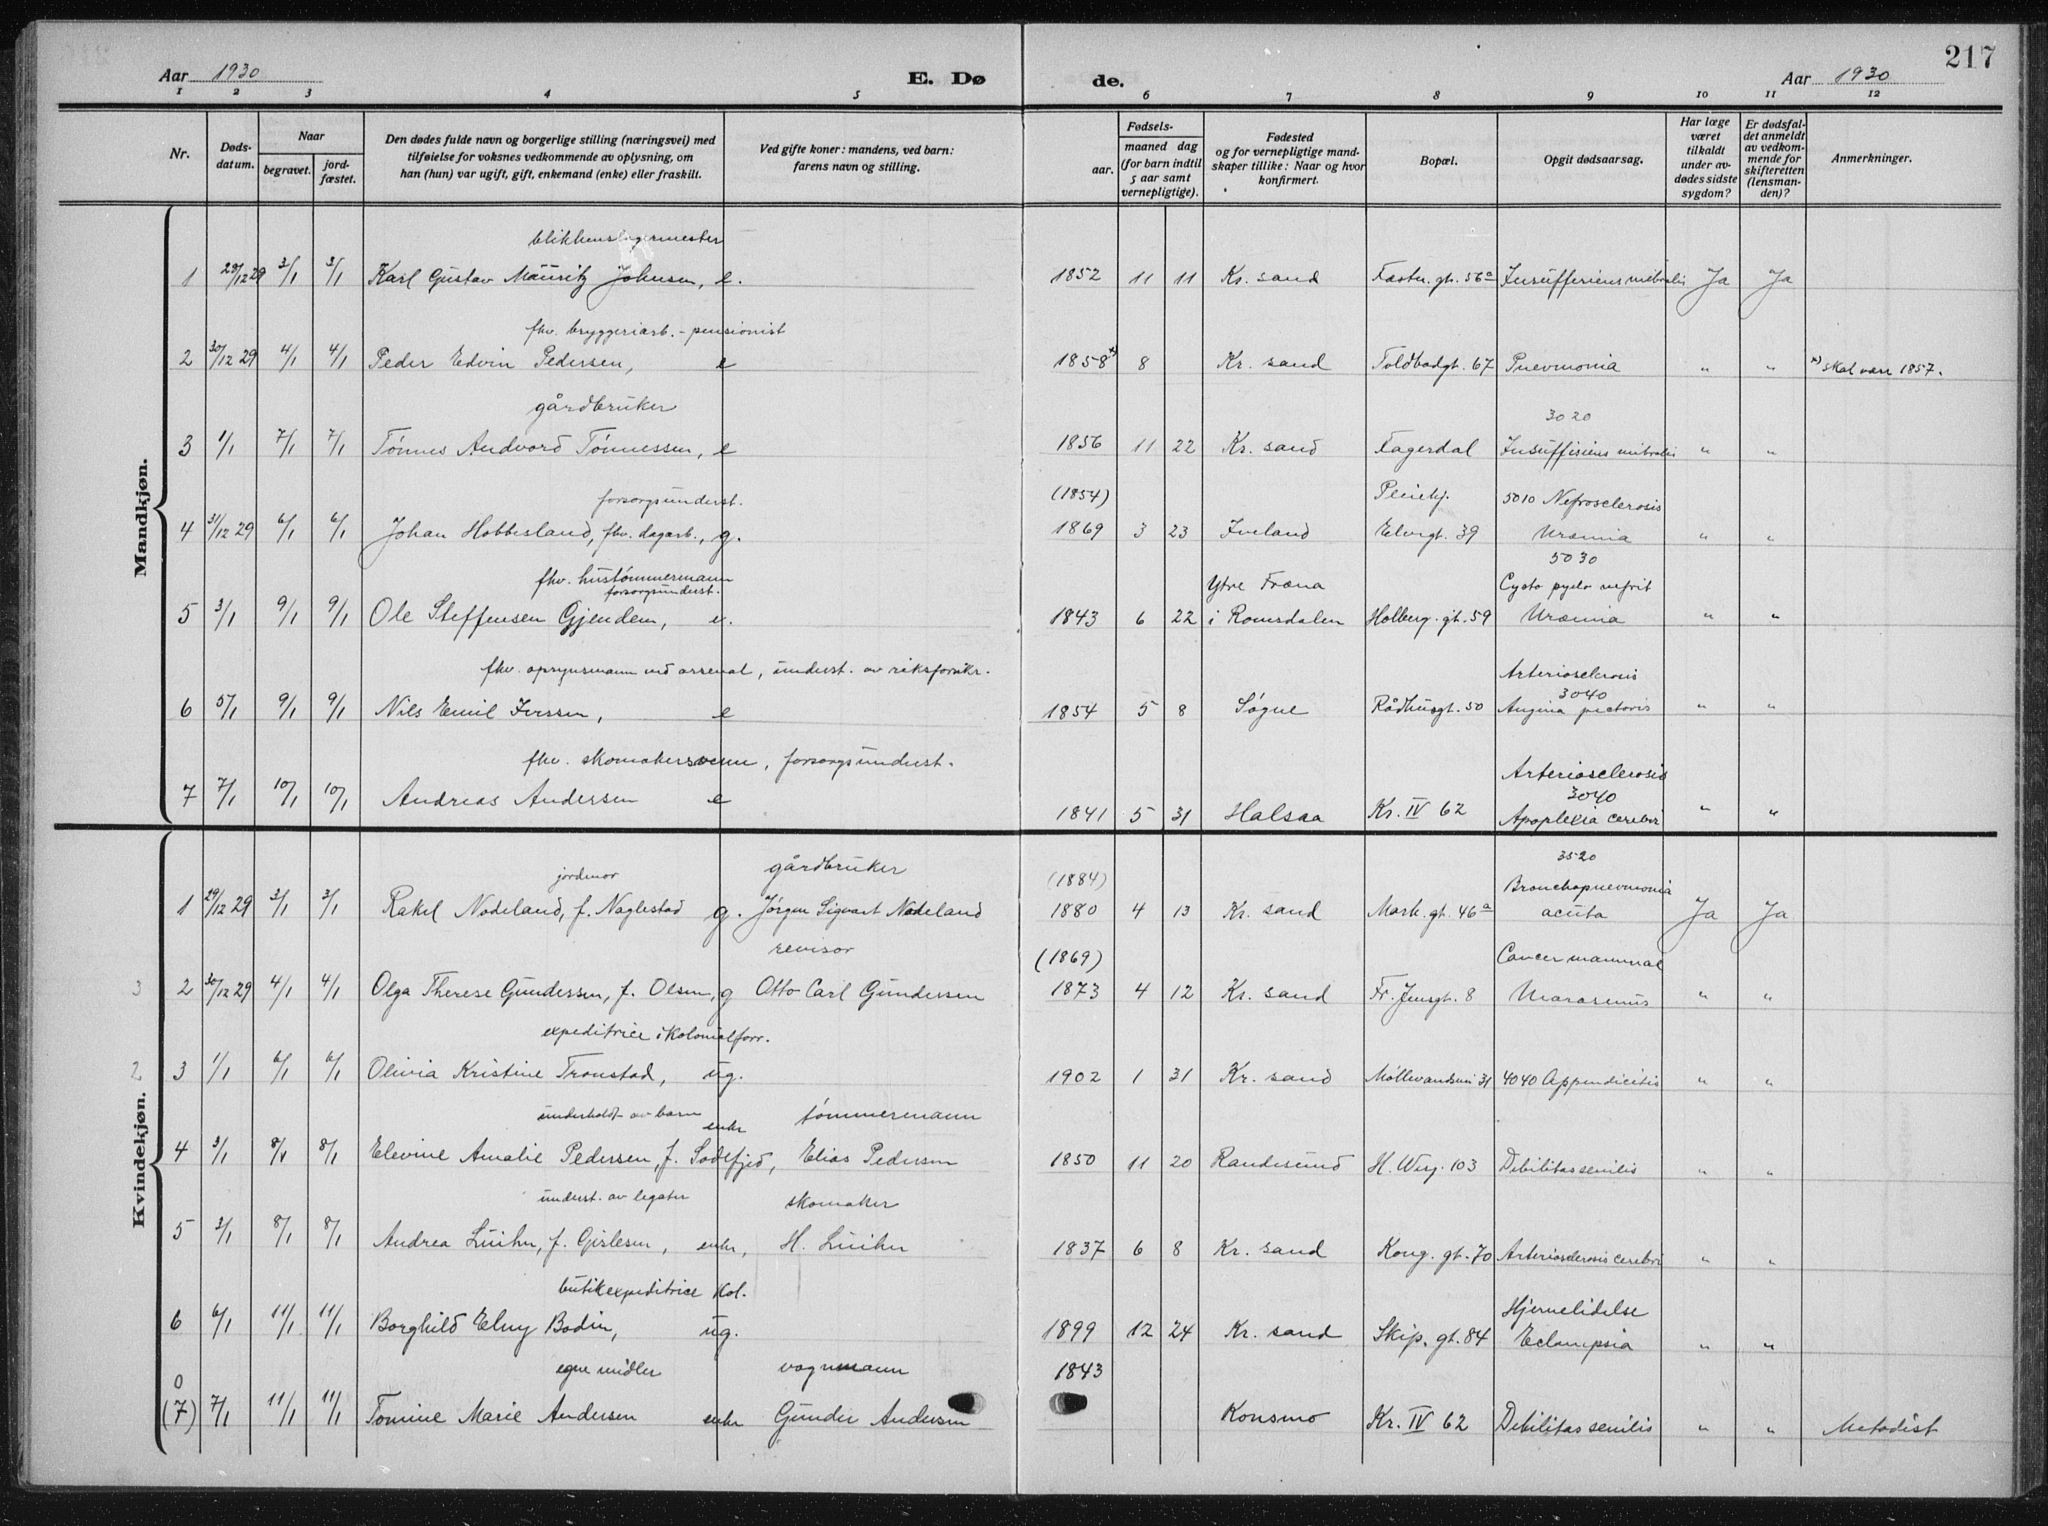 217
Aar 1930 E. Dø de. Aar 1930
1 2 3 4 5 6 7 8 9 10 11 12
Nr. Døds-datum. Naar begravet. jord-fæstet. Den dødes fulde navn og borgerlige stilling (næringsvei) med tilføielse for voksnes vedkommende av oplysning, om han (hun) var ugift, gift, enkemand (enke) eller fraskilt. Ved gifte koner: mandens, ved barn: farens navn og stilling. Fødsels- aar. maaned dag (for barn indtil 5 aar samt vernepligtige). Fødested og for vernepligtige mandskaper tillike: Naar og hvor konfirmert. Bopæl. Opgit dødsaarsag. Har læge været tilkaldt under avdødes sidste sygdom? Er dødsfaldet anmeldt av vedkommende for skifteretten (lensmanden)? Anmerkninger.
Mandkjøn.
blikkenslagermester
1 29/12 29 3/1 3/1 Karl Gustav Mauritz Johnsen, e. 1852 11 11 Kr. sand Fæstn. gt. 56a Insufficiens mitralis Ja Ja
fhv. bryggeriarb. - pensionist
2 30/12 29 4/1 4/1 Peder Edvin Pedersen, e 1858 x) 8 Kr. sand Toldbodgt. 67 Pnevmonia " " x) skal være 1857.
gårdbruker 3020
3 1/1 7/1 7/1 Tønnes Andvord Tønnessen, e 1856 11 22 Kr. sand Fagerdal Insuffisiens mitralis " "
forsorgsunderst. (1854) Pleiehj. 5010 Nefrosclerosis
4 31/12 29 6/1 6/1 Johan Hobbesland, fhv. dagarb., g. 1869 3 23 Iveland Elvegt. 39 Uræmia " "
5030
fhv. hustømmermann Ytre Fræna Cysto pyelo nefrit
forsorgsunderst.
5 3/1 9/1 9/1 Ole Steffensen Gjendem, e. 1843 6 22 i Romsdalen Holberg. gt. 59 Uræmia " "
fhv. opsynsmann ved arsenal, underst. av riksforsikr. Arteriosclerosis
3040
6 5/1 9/1 9/1 Nils Emil Iversen, e 1854 5 8 Søgne Rådhusgt. 50 Angina pectoris " "
fhv. skomakersvenn, forsorgsunderst. Arteriosclerosis
3040
7 7/1 10/1 10/1 Andreas Andersen e 1841 5 31 Halsaa Kr. IV 62 Apoplexia cerebri " "
Kvindekjøn.
3520
jordmor gårdbruker (1884) Bronchopnevmonia
1 29/12 29 3/1 3/1 Rakel Nodeland, f. Naglestad g. Jørgen Sigvart Nodeland 1880 4 13 Kr. sand Mark. gt. 46a acuta Ja Ja
revisor (1869) Cancer mammae
3 2 30/12 29 4/1 4/1 Olga Therese Gundersen, f. Olsen, g Otto Carl Gundersen 1873 4 12 Kr. sand Fr. Jensgt. 8 Marasmus " "
expeditrice i kolonialforr.
2 3 1/1 6/1 6/1 Olivia Kristine Tronstad, ug. 1902 1 31 Kr. sand Møllevandsvei 31 4040 Appendicitis " "
underholdt av barn tømmermann
4 3/1 8/1 8/1 Elevine Amalie Pedersen, f. Sodefjed, enke Elias Pedersen 1850 11 20 Randesund H. Werg. 103 Debilitas senilis " "
underst. av legater skomaker
5 3/1 8/1 8/1 Andrea Luihn, f. Gislesen, enke, H. Luihn 1837 6 8 Kr. sand Kong. gt. 70 Arteriosclerosis cerebri " "
butikexpeditrice kol. Hjernelidelse
6 6/1 11/1 11/1 Borghild Elny Bodin, ug. 1899 12 24 Kr. sand Skip. gt. 84 Eclampsia " "
0 egne midler vognmann 1843
(7) 7/1 11/1 11/1 Tomine Marie Andersen enke Gunder Andersen Konsmo Kr. IV 62 Debilitas senilis " " Metodist